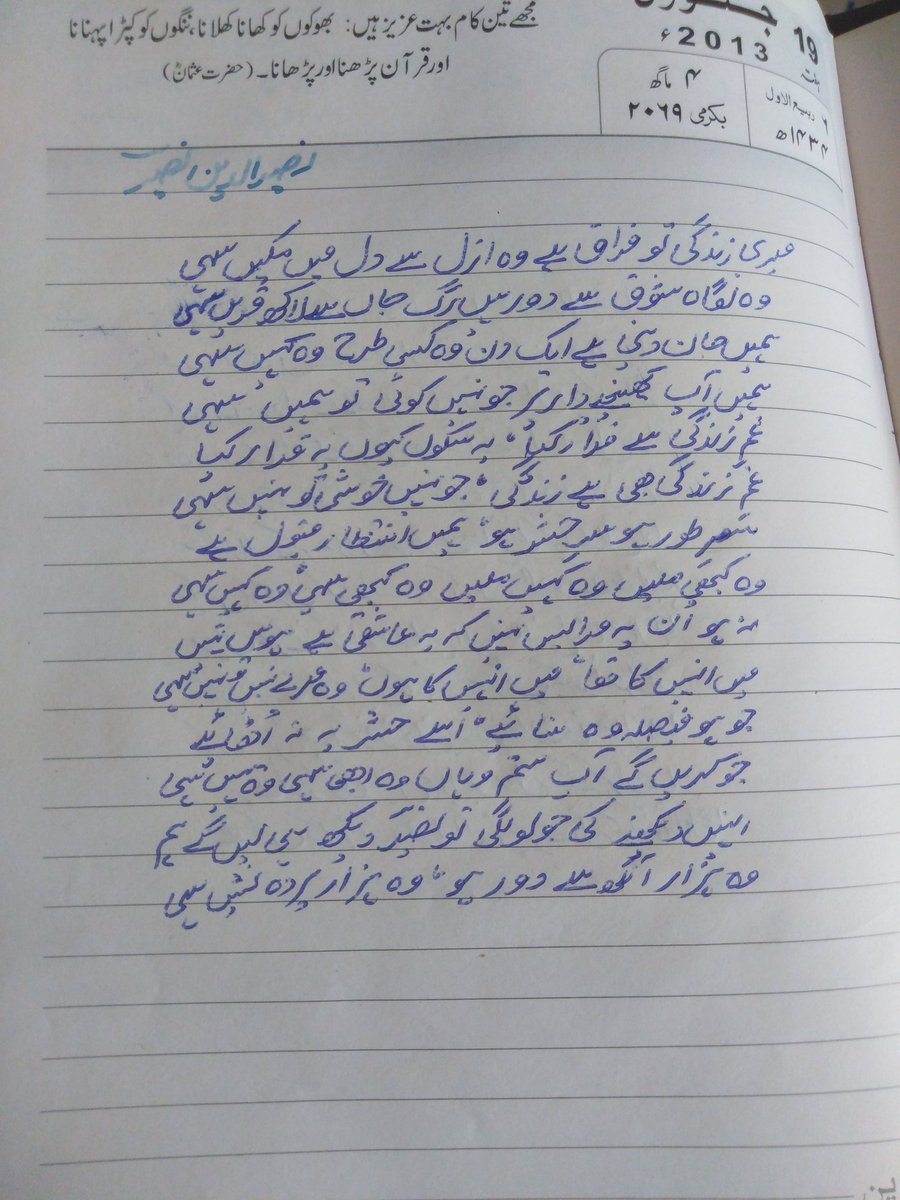 جنوری
19
2013ء
ہفتہ
۶ ربیع الاول
۱۴۳۴ھ
۴ ماگھ
بکرمی ۲۰۶۹
مجھے تین کام بہت عزیز ہیں: بھوکوں کو کھانا کھلانا، ننگوں کو کپڑا پہنانا
اور قرآن پڑھنا اور پڑھانا۔ (حضرت عثمانؓ)
نصیر الدین نصیر
میری زندگی تو فراق ہے وہ ازل سے دل میں مکیں سہی
وہ نگاہ شوق سے دور ہیں رگ جاں سے لاکھ قریں سہی
ہمیں جان دینی ہے ایک دن وہ کسی طرح وہ کہیں سہی
ہمیں آپ کھینچے دار پر جو نہیں کوئی تو ہمیں سہی
غم زندگی سے فرار کیا، یہ سکوں کیوں یہ قرار کیا
غم زندگی بھی ہے زندگی، جو نہیں خوشی تو نہیں سہی
سر طور ہو سر حشر ہو، ہمیں انتظار قبول ہے
وہ کبھی ملیں وہ کہیں ملیں وہ کبھی سہی وہ کہیں سہی
نہ ہو ان پہ مرا بس نہیں کہ یہ عاشقی ہے ہوس نہیں
میں انہیں کا تھا، میں انہیں کا ہوں، وہ مرے نہیں تو نہیں سہی
جو ہو فیصلہ وہ سنائیے، اسے حشر پہ نہ اٹھائیے
جو کریں گے آپ ستم وہاں وہ ابھی سہی وہ یہیں سہی
انہیں دیکھنے کی جو لو لگی تو نصیر دیکھ ہی لیں گے ہم
وہ ہزار آنکھ سے دور ہو، وہ ہزار پردہ نشیں سہی